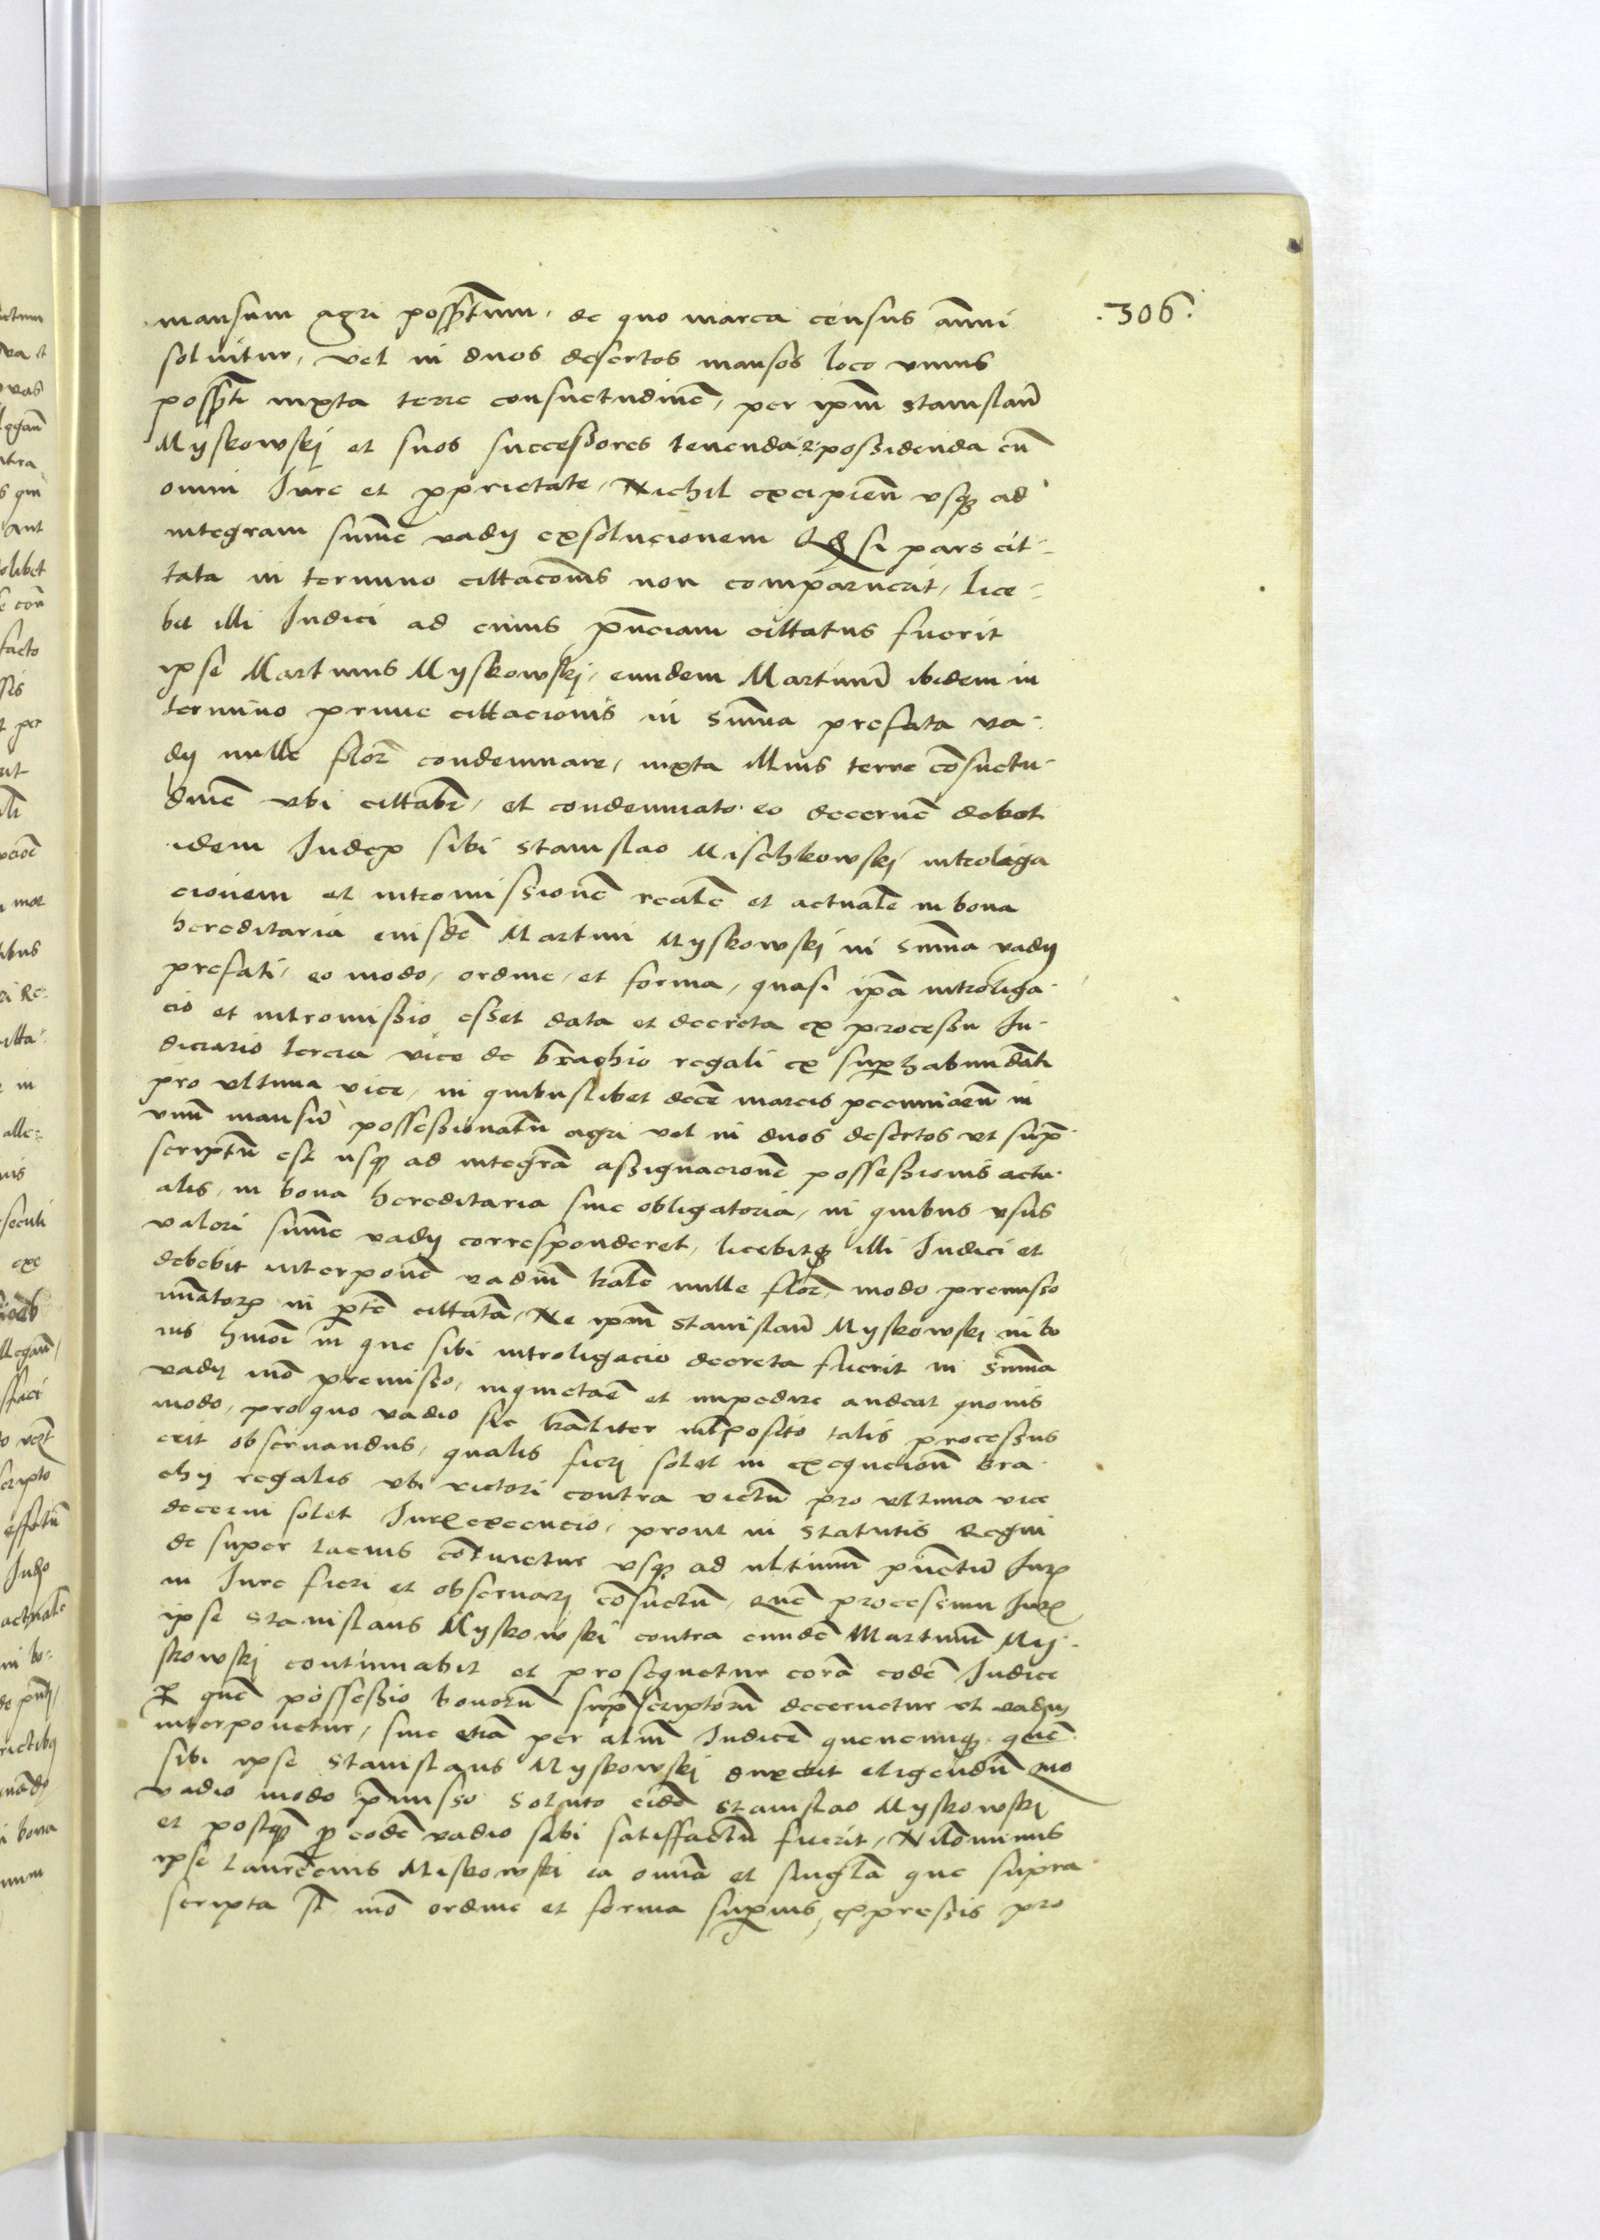 .306.
mansum agri posstum, de quo marca census anni
solvitur, vel in duos desertos mansos loco unius
possti iuxta terre consuetudinē, per ipm̄ stanislaū
Myskowskj et suos successores tenenda & possidenda cū
omni Iure et proprietate, Nichil excipien̄ usqꝫ ad
integram sum̄e vadij exsolucionem Qd si pars cit-
tata in termino cittacōnis non comparuerit, lice-
bit illi Iudici ad cuius pn̄ciam cittatus fuerit
ipse Martinus Myskowskj, eundem Martinū ibidem in
termino prime cittacionis in Sum̄a prefata va-
dij mille flor̄ condemnare, iuxta illius terre cōsuetu-
dinē ubi cittabr̄, et condemnato eo decernē debet
idem Iudex sibi Stanislao Mischkowskj introliga
cionem et intromissionē realē et actualē in bona
hereditaria eiusdē Martini Myskowskj in Sum̄a vadij
prefati, eo modo, ordine, et forma, quasi ipā introliga-
cio et intromissio esset data et decreta ex processu Iu-
diciario tercia vice de brachio regali ex superhabundāti
pro ultima vice, in quibuslibet decē marcis pecunia in
unū mansū possessionatū agri vel in duos desertos ut sup̄
scriptū est usqꝫ ad integrā assignacionē possessionis actu-
alis, in bona hereditaria sive obligatoria, in quibus usus
valori sum̄e vadij corresponderet, licebitqꝫ illi Iudici et
debebit interponē vadiū tralē mille flor̄ modo premisso
in ptē cittatā, Ne ipm̄ Stanislaū Myskowskj in bo
nis hmōi in que sibi introligacio decreta fuerit in Sum̄a
vadij mō premisso, inquietaē et impedire audeat quovis
modo, pro quo vadio sic traliter intposito talis processus
erit observandus, qualis fierj solet in execucionū bra-
chij regalis ubi victori contra victū pro ultima vice
decerni solet Iurꝭ execucio, prout in statutis Regni
de super lacius cōtinetur usqꝫ ad ultimū punctū Iurꝭ
in Iure fieri et observarj cōsuetū, Quē processum Iurꝭ
ipse Stanislaus Myskowskj contra eundē Martinū My-
skowskj continuabit et prosequetur corā eodē Iudice
per quē possessio bonorū supscriptorū decernetur et vadiū
interponetur, sive etiā per aliū Iudicē quēcumqꝫ quē
sibi ipse Stanislaus Myskowskj duxerit eligendū Quo
vadio modo pmisso Soluto eidē Stanislao Myskowskj
et postqꝫ pro eodē vadio sibi satisfactū fuerit, Nilominus
ipse Laurēcius Miskowskj ea omīa et singlā que supra
scripta st̄ mō ordine et forma supius expressis pro